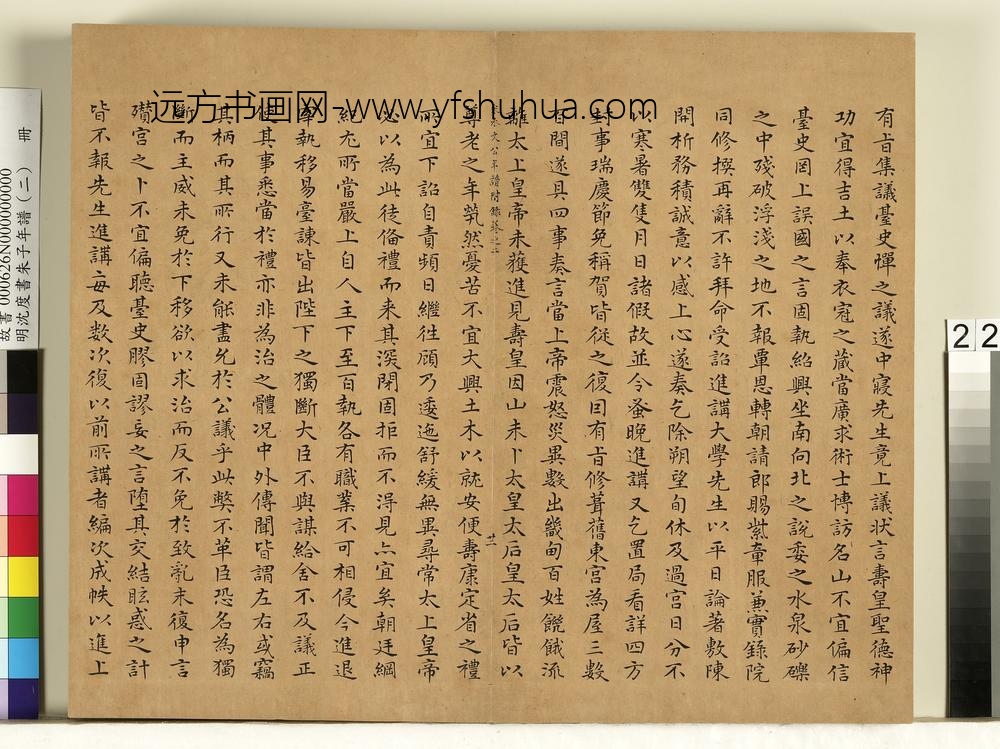 远方书画网-www.yfshuhua.com
有旨集議臺史憚之議遂中寢先生竟上議狀言壽皇聖德神
功宜得吉土以奉衣冠之藏當廣求術士博訪名山不宜偏信
臺史罔上誤國之言固執紹興坐南向北之說委之水泉砂礫
之中殘破浮淺之地不報覃恩轉朝請郎賜紫章服兼實錄院
同修撰再辭不許拜命受詔進講大學先生以平日論著敷陳
開析務積誠意以感上心遂奏乞除朔望旬休及過宮日分不
以寒暑雙隻月日諸假故並令蚤晚進講又乞置局看詳四方
封事瑞慶節免稱賀皆從之復曰有旨修葺舊東宮為屋三數
百間遂具四事奏言當上帝震怒災異數出畿甸百姓饑餓流
離太上皇帝未獲進見壽皇因山未卜太皇太后皇太后皆以
文公年譜附錄卷之二
廿一
尊老之年煢然憂苦不宜大興土木以就安便壽康定省之禮
所宜下詔自責頻日繼徃顧乃逶迤舒緩無異尋常太上皇帝
必以為此徒備禮而来其深閉固拒而不淂見亦宜矣朝廷綱
紀尤所當嚴上自人主下至百執各有職業不可相侵今進退
宰執移易臺諫皆出陛下之獨斷大臣不與謀給舍不及議正
使其事悉當於禮亦非為治之體况中外傳聞皆謂左右或竊
其柄而其所行又未能盡允於公議乎此弊不革臣恐名為獨
斷而主威未免於下移欲以求治而反不免於致亂末復申言
殯宮之卜不宜偏聽臺史膠固謬妄之言墮其交結眩惑之計
皆不報先生進講每及数次復以前所講者編次成帙以進上
故書 000626N0000000000
明沈度書朱子年譜(二) 冊
22